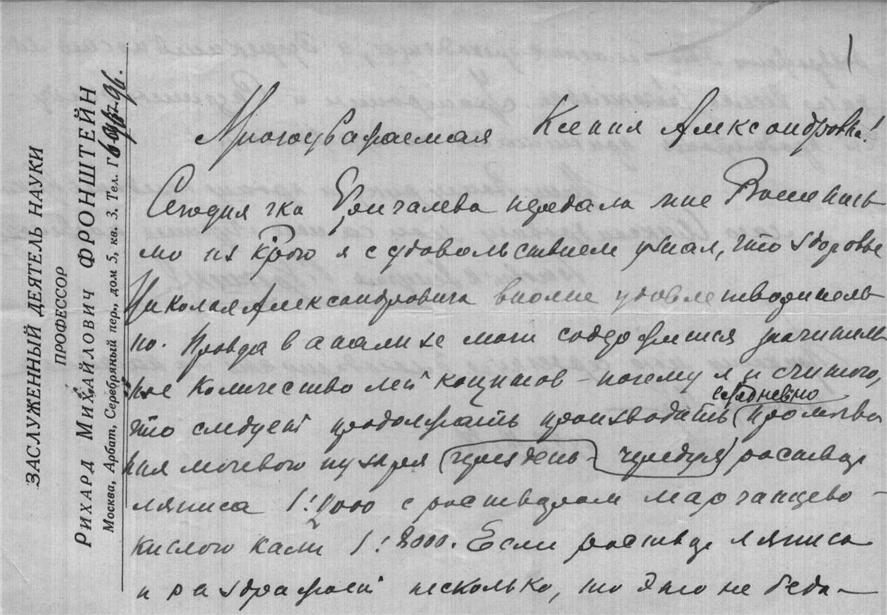 ЗАСЛУЖЕННЫЙ ДЕЯТЕЛЬ НАУКИ
ПРОФЕССОР
РИХАРД МИХАЙЛОВИЧ ФРОНШТЕЙН
Москва, Арбат, Серебряный пер., дом 5, кв. 3, Тел. Г
1
Многоуважаемая Ксения Александровна!
Сегодня г-ка передала мне Ваше пись-
мо из я с удовольствием узнал, что здоровье
Николая Александровича вполне удовлетворитель-
но. Правда в анализе мочи содержится значитель-
ное количество лейкоцитов – почему я и считаю,
ежедневно
что следует продолжать производить промыва-
ния мочевого пузыря через день чередуя раствор
ляписа 1:9000 с раствором марганцево-
кислого кали 1:8000. Если раствор ляписа
и раздражает несколько, то это не беда –